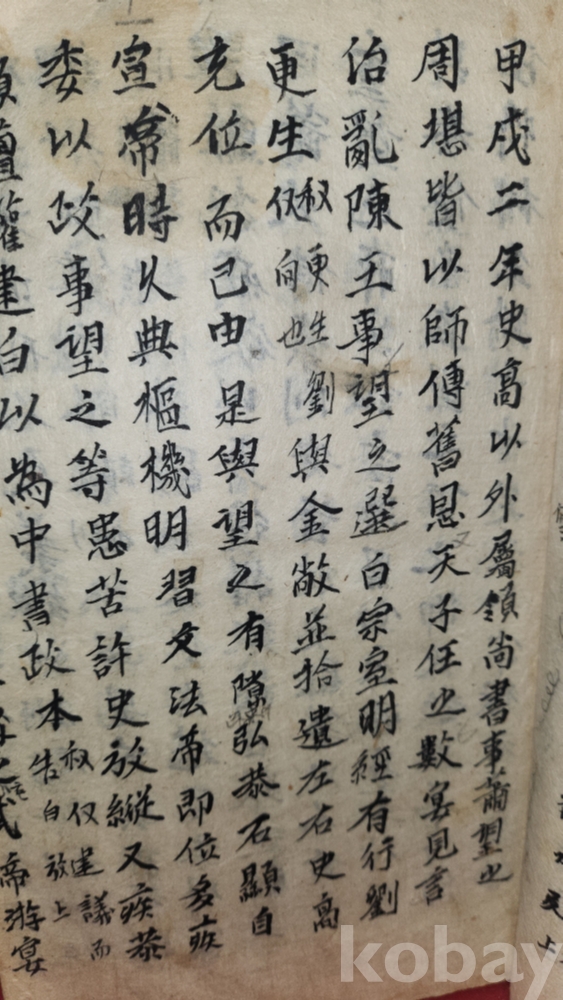 甲戌二年史高以外屬領尚書事蕭望之
周堪皆以師傅舊恩天子任之數宴見言
治亂陳王事望之選白宗室明經有行劉
更生叔更生仅向也劉與金敞並拾遺左右史高
充位而已由是與望之有隙弘恭石顯自
宣帝時久典樞機明習文法帝即位多疾
委以政事望之等患苦許史放縱又疾恭
顯擅建白以為中書政本叔仅建議而告白放上
帝游宴
kobay